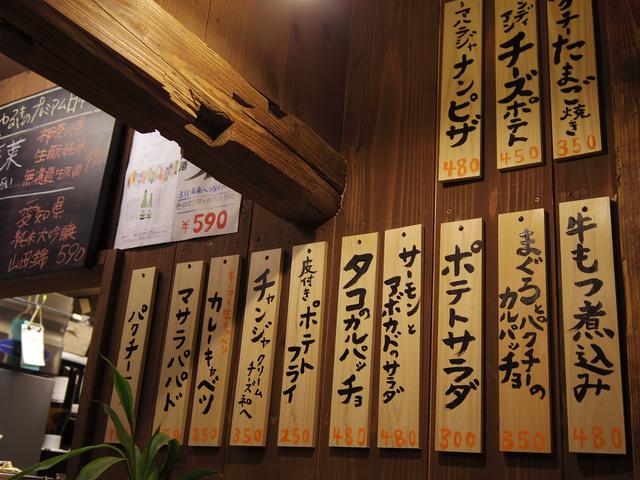 マハラジャ
ナンピザ
480
チーズポテト
450
クチーたまご焼き
350
牛もつ煮込み
480
まぐろとパクチーの
カルパッチョ
350
ポテトサラダ
300
サーモンと
アボカドのサラダ
480
タコのカルパッチョ
480
皮付きポテト
フライ
250
チャンジャ
クリーム
チーズ和え
350
カレーキャベツ
250
マサラパパド
50
パクチー
¥590
神奈川県
生酛純米
愛知県
純米大吟醸
山田錦 590